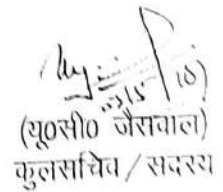 (यू०सी० जैसवाल)
कुलसचिव / सदस्य